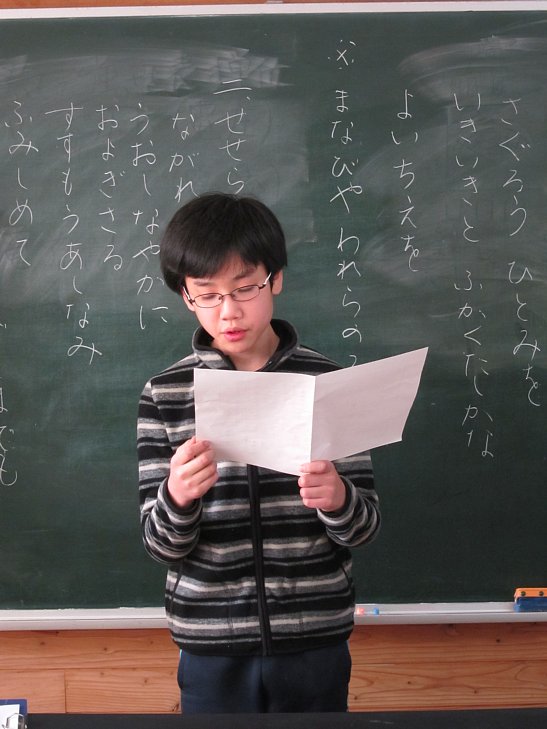 さぐろう ひとみを
いきいきと ふかくたしかな
よいちえを
※ まなびや われらの
二、せせら
ながれ
うおしなやかに
およぎさる
すすもうあしなみ
ふみしめて
までも